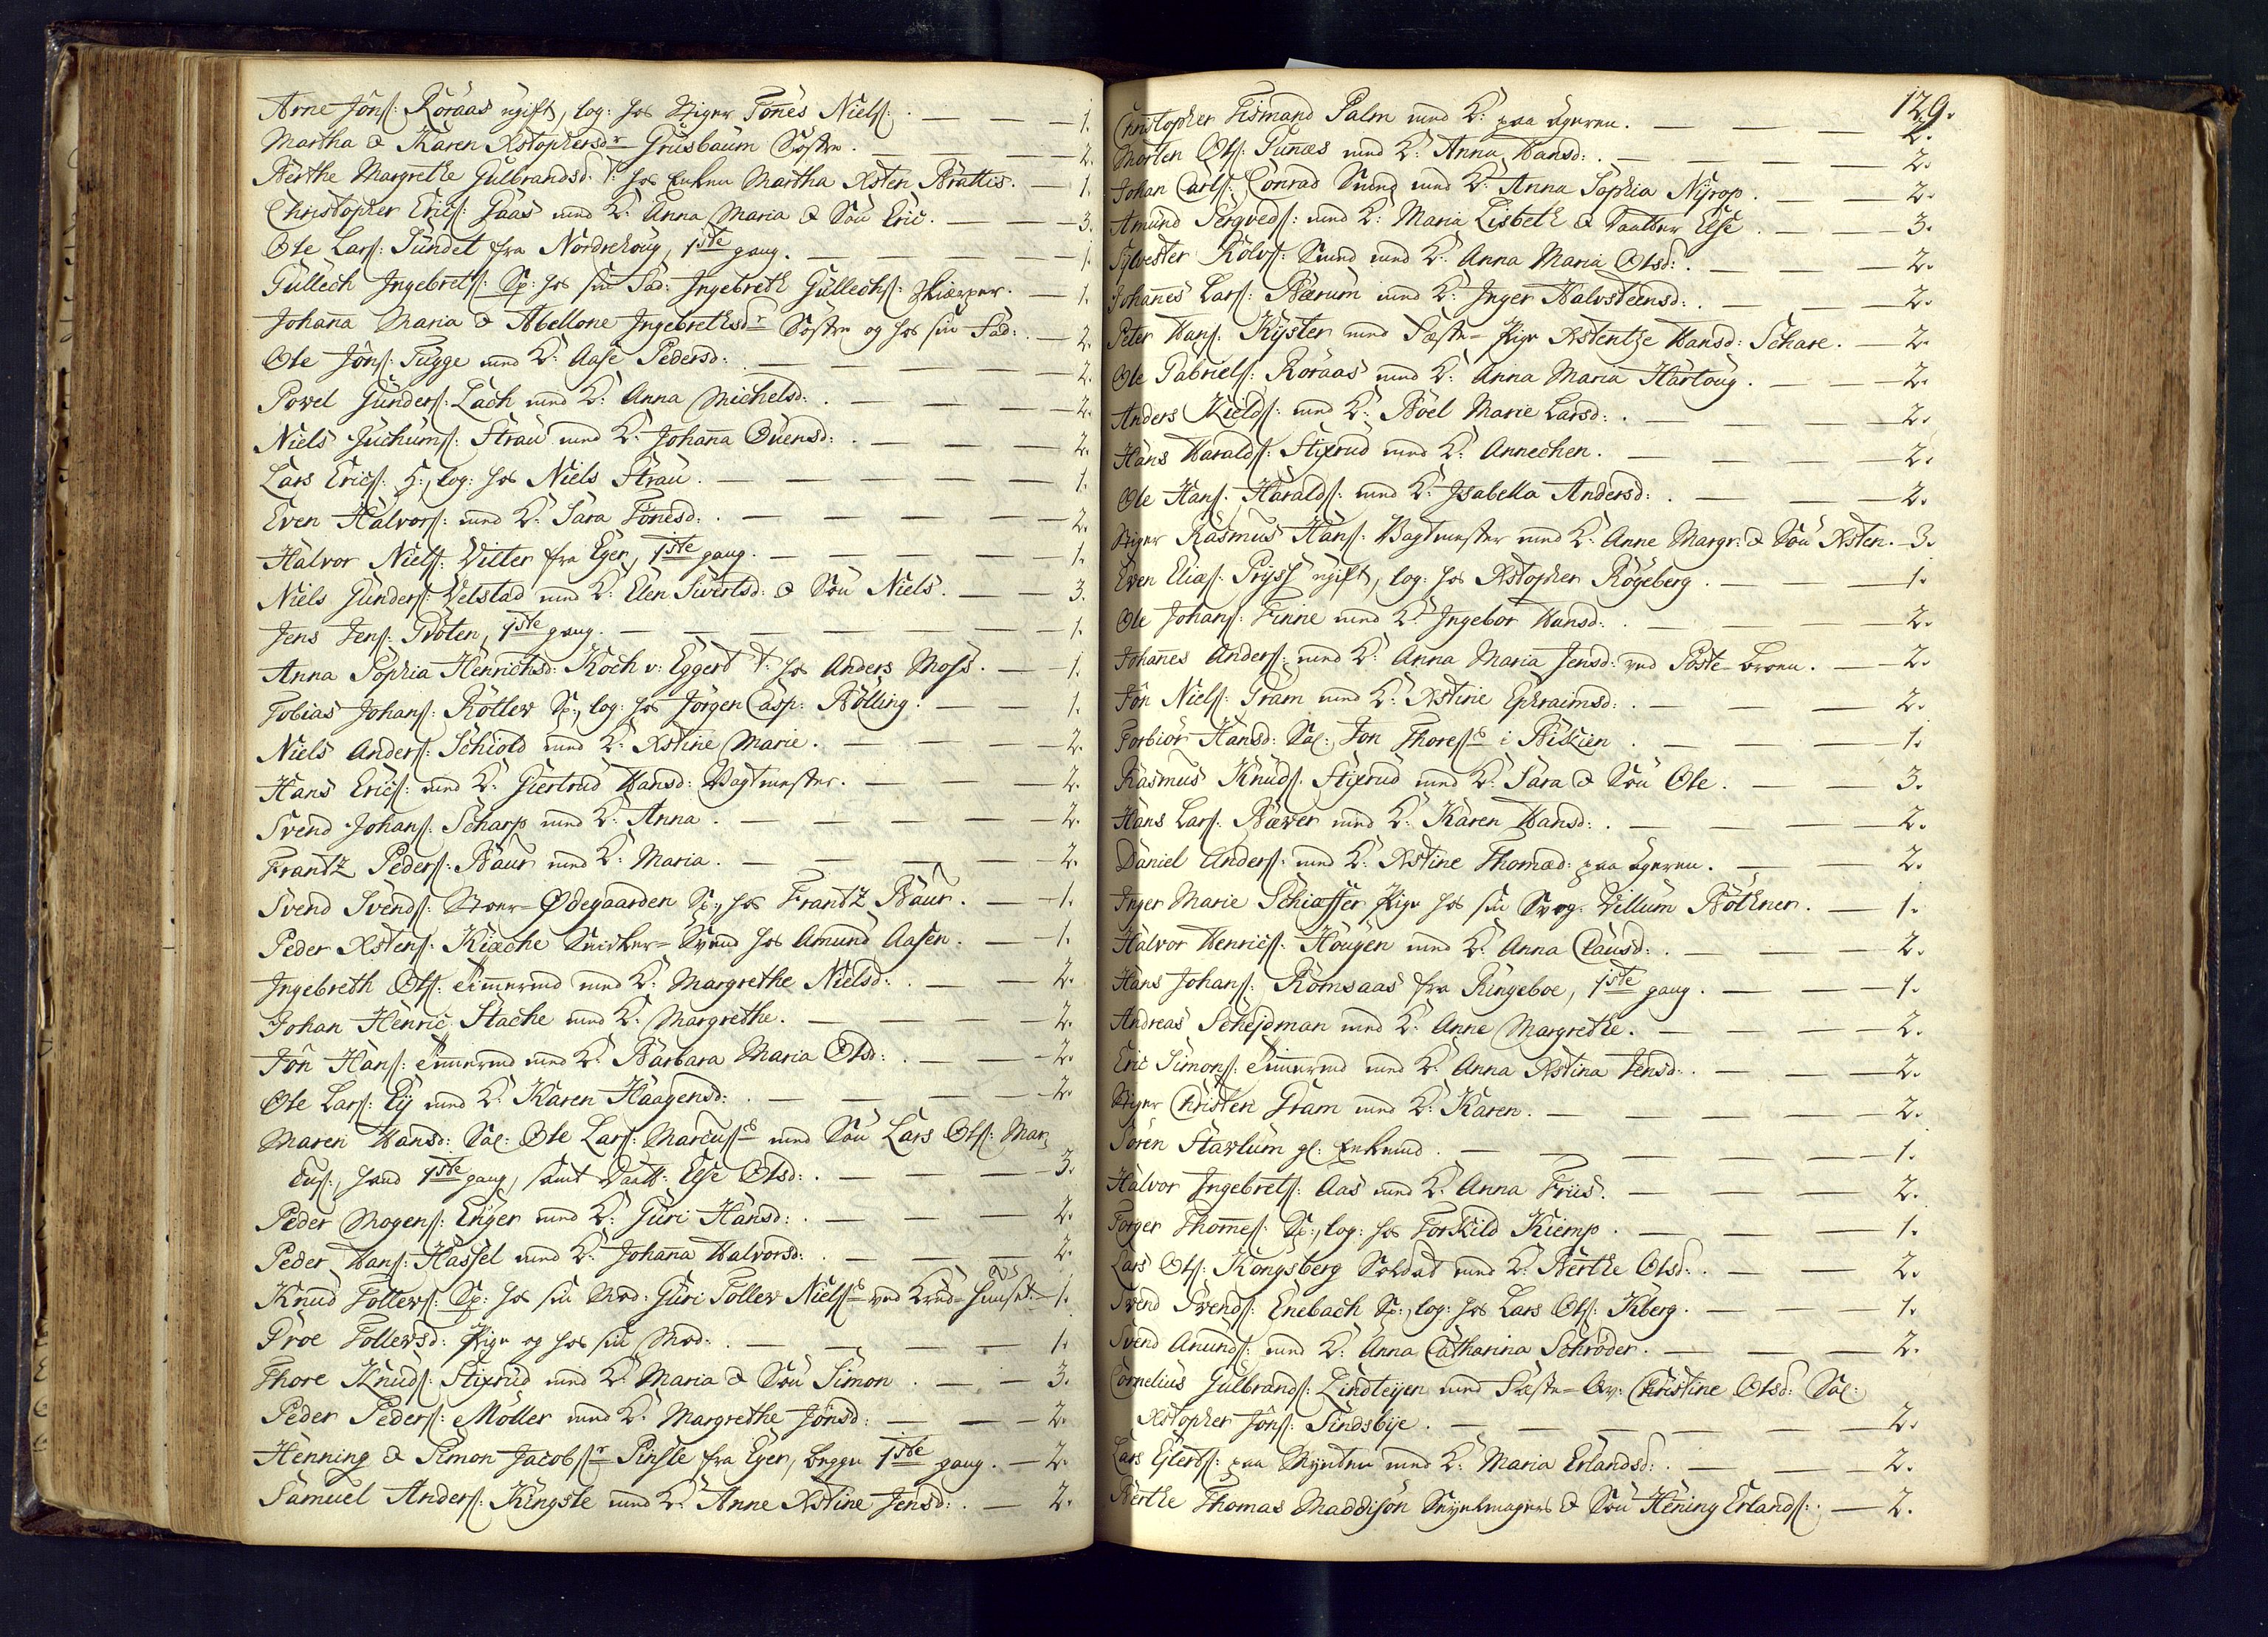 Arne Jönſ: Röraas ugift, log: hos Stiger Tönes Nielſ: . — — — 1.
Martha & Karen Xstophersd:r Grüsbaüm Søstre. — — — 2.
Berthe Margrethe Gülbrandsd: T: hos Enken Martha Xsten Brattis. — 1.
Christopher Ericſ: Gaas med K: Anna Maria & Søn Eric. — — — 3.
Ole Larſ: Sündet fra Nordrehoüg, 1ste gang. — — — 1.
Güllech Ingebretſ: Sp: hos sin Fad: Ingebreth Güllechſ: Skierper. — 1.
Johana Maria & Abellone Ingebrethsd:r Søstre og hos sin Fad: . — 2.
Ole Jönſ: Tügge med K: Aase Pedersd: . — — — 2.
Povel Günderſ: Lach med K: Anna Michelsd: . — — — 2.
Niels Jüchümſ: Straü med K: Johana Evensd: . — — — 2.
Lars Ericſ: H:, log: hos Niels Straü. — — — 1.
Even Halvorſ: med K: Sara Tönesd: . — — — 2.
Halvor Nielſ: Vitter fra Eger, 1ste gang. — — — 1.
Niels Günderſ: Velstad med K: Elen Sivertsd: & Søn Niels. — — 3.
Jens Jenſ: Gröten, 1ste gang. — — — 1.
Anna Sophia Henrichsd: Koch v: Eggert T: hos Anders Moſs. — 1.
Tobias Johanſ: Röttew Sp:, log: hos Jörgen Casp: Bölling. — — 1.
Niels Anderſ: Schiold med K: Xstine Marie. — — — 2.
Hans Ericſ: med K: Giertrud Hansd: Vagtmester. — — — 2.
Svend Johanſ: Scharp med K: Anna. — — — 2.
Frantz Pederſ: Baür med K: Maria. — — — 2.
Svend Svendſ: Stoer-Ødegaarden Sp:, hos Frantz Baür. — 1.
Peder Xstenſ: Kiæche Snidker-Svend hos Amund Aasen. — 1.
Ingebreth Olſ: Timermd med K: Margrethe Nielsd: . — — 2.
Johan Henric Stache med K: Margrethe. — — — 2.
Jön Hanſ: Timermd med K: Barbara Maria Olsd: . — — 2.
Ole Larſ: Lij med K: Karen Haagensd: . — — — 2.
Maren Hansd: Sal: Ole Larſ: Marcüſ:s med Søn Lars Olſ: Mar,
cuſ:, hand 1ste gang, samt Daatt: Else Olsd: . — — — 3.
Peder Mogenſ: Enger med K: Güri Hansd: . — — — 2.
Peder Hanſ: Haſſel med K: Johana Halvorsd: . — — — 2.
Knüd Tollewſ: Sp: hos sin Mod: Güri Tollew Nielſ:s ved Krud-Huuset. — 1.
Groe Tollewsd: Pige og hos sin Mod: . — — — 1.
Thore Knüdſ: Stixrüd med K: Maria & Søn Simon. — — 3.
Peder Pederſ: Möller med K: Margrethe Jönsd: . — — — 2.
Henning & Simon Jacobſ:r Pinſle fra Eger, begge 1ste gang. — 2.
Samuel Anderſ: Kingste med K: Anne Xstine Jensd: . — 2.
129.
Christopher Tismand Palm med K: paa Ageren. — — — 2.
Morten Olſ: Tunæs med K: Anna Hansd: . — — — 2.
Johan Carlſ: Conrad Smed med K: Anna Sophia Nÿrop. — — 2.
Amünd Sergvedſ: med K: Maria Lisbeth & Daatter Else. — — 3.
Sylvester Rolvſ: Smed med K: Anna Maria Olsd: . — — — 2.
Johanes Larſ: Bærüm med K: Inger Halvsteensd: . — — — 2.
Peter Hanſ: Kÿster med Fæste-Pige Xstentze Hansd: Schare. — 2.
Ole Gabrielſ: Röraas med K: Anna Maria Hartoüg. — — 2.
Anders Kieldſ: med K: Boel Marie Larsd: . — — — 2.
Hans Haraldſ: Stixrüd med K: Annechen. — — — 2.
Ole Hanſ: Haraldſ: med K: Isabella Andersd: . — — — 2.
Stiger Rasmüs Hanſ: Vagtmester med K: Anne Margr: & Søn Xsten. — 3.
Even Eliaſ: Prÿſſ ugift, log: hos Xstopher Rögeberg. — — 1.
Ole Johanſ: Finne med K: Ingebor Hansd: . — — — 2.
Johanes Anderſ: med K: Anna Maria Jensd: ved Poste-broen. — 2.
Jön Nielſ: Gram med K: Xstine Ephraimsd: . — — — 2.
Torbiör Hansd: Sal: Jon Thoreſ:s i Biskien. — — — 1.
Rasmüs Knüdſ: Stixrüd med K: Sara & Søn Ole. — — 3.
Hans Larſ: Bæver med K: Karen Hansd: . — — — 2.
Daniel Anderſ: med K: Xstine Thomæd: paa Ageren. — — 2.
Inger Marie Schiaffer Pige hos sin Svog: Villum Böthner. — 1.
Halvor Henricſ: Hoügen med K: Anna Clausd: . — — — 2.
Hans Johanſ: Romsaas fra Ringeboe, 1ste gang. — — — 1.
Andreas Schejdman med K: Anne Margrethe. — — — 2.
Eric Simonſ: Timermd med K: Anna Xstina Jensd: . — — 2.
Stiger Christen Gram med K: Karen. — — — 2.
Sören Stavlüm gl: Enkemd. — — — 1.
Halvor Ingebretſ: Aas med K: Anna Friis. — — — 2.
Torger Thomeſ: Sp:, log: hos Torkild Kiemp. — — — 1.
Lars Olſ: Kongsberg Soldat med K: Berthe Olsd: . — — 2.
Svend Svendſ: Enebach Sp:, log: hos Lars Olſ: Kberg. — — 1.
Svend Anundſ: med K: Anna Catharina Schröder. — — 2.
Cornelius Gülbrandſ: Lindteijen med Fæste-Qv: Christine Olsd: Sal:
Xstopher Jönſ: Sindsbÿe. — — — 2.
Lars Ejlertſ: paa Mynten med K: Maria Erlandsd: . — — 2.
Berthe Thomas Maddison Seijelmagers & Søn Hening Erlandſ: . — 2.